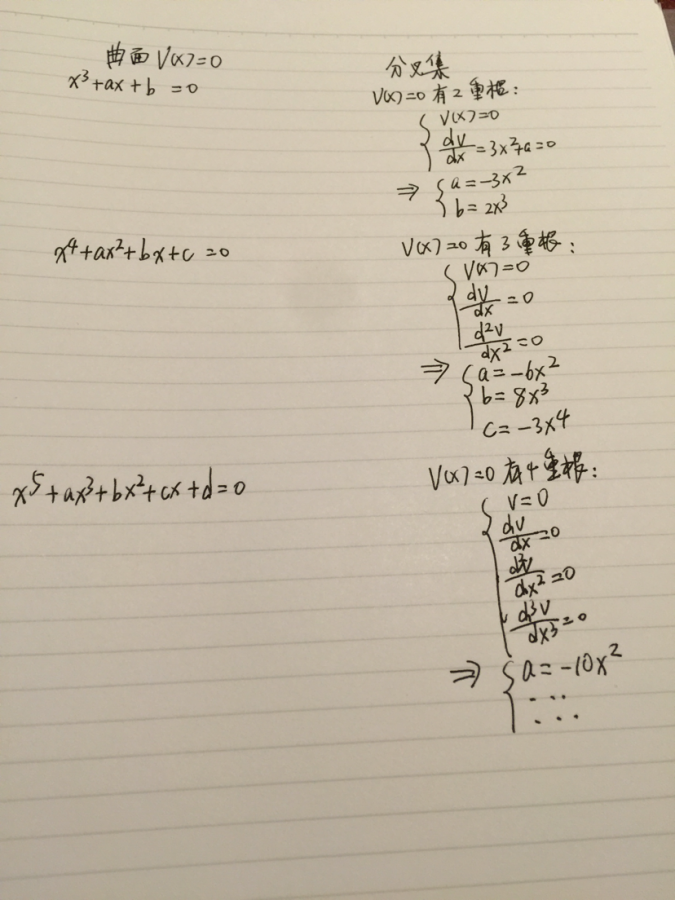 曲面 V(x)=0
x³+ax+b =0
分叉集
V(x)=0有2重根:
V(x)=0
dV/dx=3x²+a=0
⇒ a=-3x²
b=2x³
x⁴+ax²+bx+c=0
V(x)=0有3重根:
V(x)=0
dV/dx=0
d²V/dx²=0
⇒ a=-6x²
b=8x³
c=-3x⁴
x⁵+ax³+bx²+cx+d=0
V(x)=0有4重根:
V=0
dV/dx=0
d²V/dx²=0
d³V/dx³=0
⇒ a=-10x²
...
...